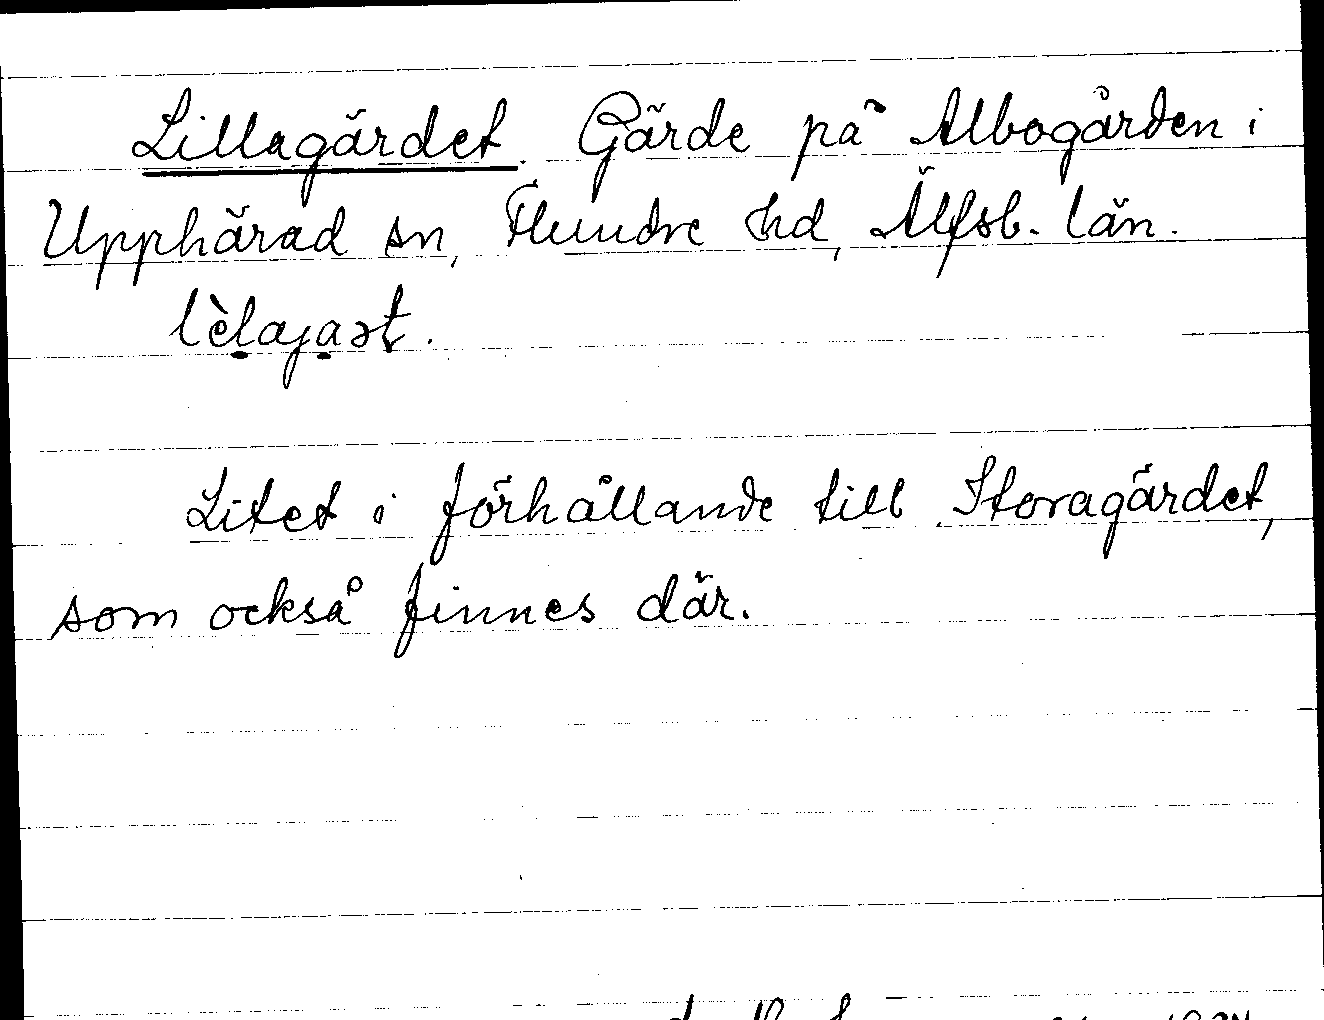 Lillagärdet. Gärde på Albogården i
Upphärad sn, Flundre hd, Älfsb. län.
lèlajaət.
Litet i förhållande till Storagärdet,
som också finnes där.